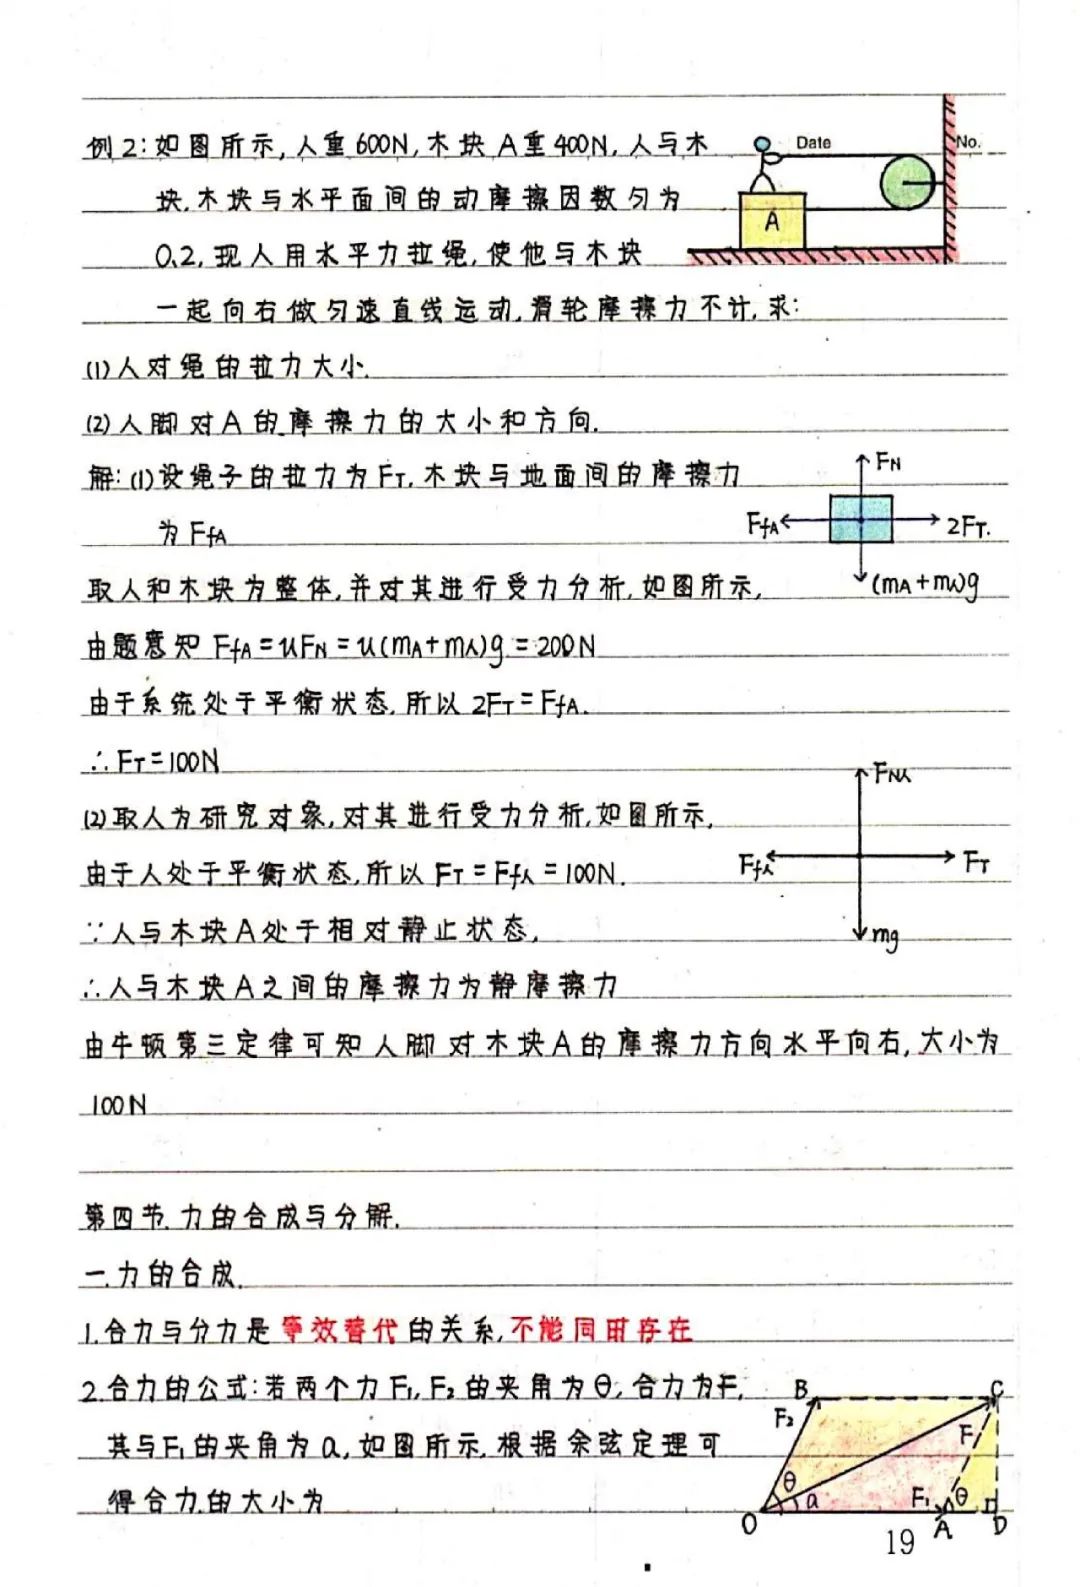 Date
No.
例2:如图所示,人重600N,木块A重400N,人与木
块,木块与水平面间的动摩擦因数匀为
0.2,现人用水平力拉绳,使他与木块
一起向右做匀速直线运动,滑轮摩擦力不计,求:
A
(1)人对绳的拉力大小.
(2)人脚对A的摩擦力的大小和方向.
解:(1)设绳子的拉力为FT,木块与地面间的摩擦力
为FfA
FN
FfA
2FT.
(mA+m人)g
取人和木块为整体,并对其进行受力分析,如图所示,
由题意知FfA=μFN=μ(mA+m人)g=200N
由于系统处于平衡状态,所以2FT=FfA.
∴FT=100N
(2)取人为研究对象,对其进行受力分析,如图所示,
由于人处于平衡状态,所以FT=Ff人=100N.
FN人
Ff人
FT
mg
∵人与木块A处于相对静止状态,
∴人与木块A之间的摩擦力为静摩擦力
由牛顿第三定律可知人脚对木块A的摩擦力方向水平向右,大小为
100N
第四节.力的合成与分解.
一.力的合成.
1.合力与分力是等效替代的关系,不能同时存在
2.合力的公式:若两个力F₁,F₂的夹角为θ,合力为F,
其与F₁的夹角为α,如图所示,根据余弦定理可
得合力的大小为
B
C
F₂
F
θ
α
F₁
θ
O
A
D
19